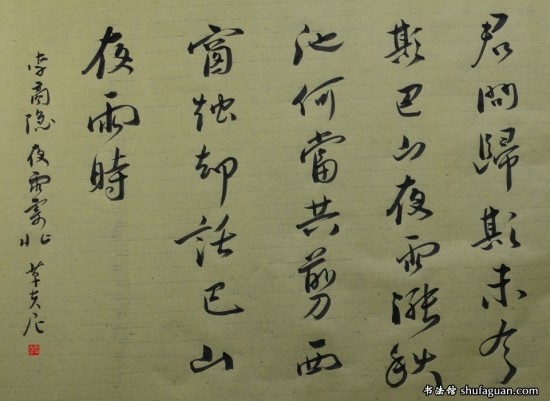 君問歸期未有
期巴山夜雨漲秋
池何當共剪西
窗烛却話巴山
夜雨時
李商隐夜雨寄北
书法馆 shufaguan.com